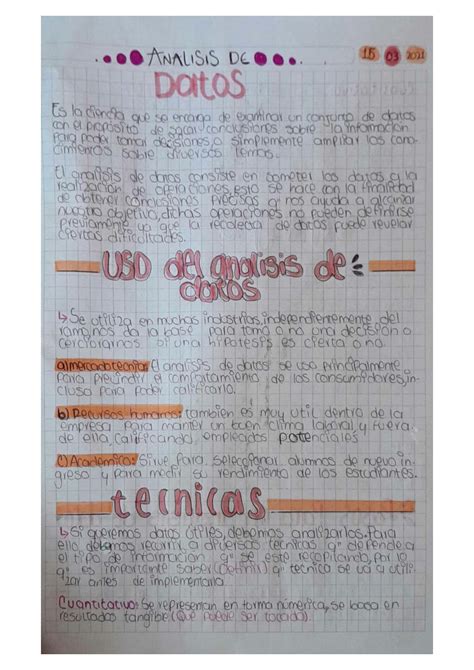 ANALISIS DE
15 03 2021
Datos
Es la ciencia que se encarga de examinar un conjunto de datos
con el propósito de sacar conclusiones sobre la información
para poder tomar decisiones, o simplemente ampliar los cono-
cimientos sobre diversos temas.
El analisis de datos consiste en someter los datos a la
realización de operaciones, esto se hace con la finalidad
de obtener conclusiones precisas q' nos ayuda a alcanzar
nuestro objetivo, dichas operaciones no pueden definirse
previamente ya que la recolecta de datos puede revelar
ciertas dificultades.
USO del analisis de
datos
↳ Se utiliza en muchas industrias, independientemente del
ramo, nos da la base para toma o no una decisión o
cerciorarnos si una hipotesis es cierta o no.
a) mercadotecnia: El analisis de datos se usa principalmente
para predecir el comportamiento de los consumidores, in-
cluso para poder calificarlo.
b) Recursos humanos: tambien es muy util dentro de la
empresa para mantener un buen clima laboral, y fuera
de ella, calificando, empleados potenciales
c) Academico: Sirve para seleccionar alumnos de nuevo in-
greso y para medir su rendimiento de los estudiantes.
tecnicas
↳ Si queremos datos útiles, debemos analizarlos. Para
ello debemos recurrir a diversas tecnicas q' dependen
el tipo de información q' se este recopilando, por lo
q' es importante saber (definir) q' tecnica se va a utili-
zar antes de implementarla.
Cuantitativo: Se representan en forma númerica, se basa en
resultados tangible (Que puede ser tocada).